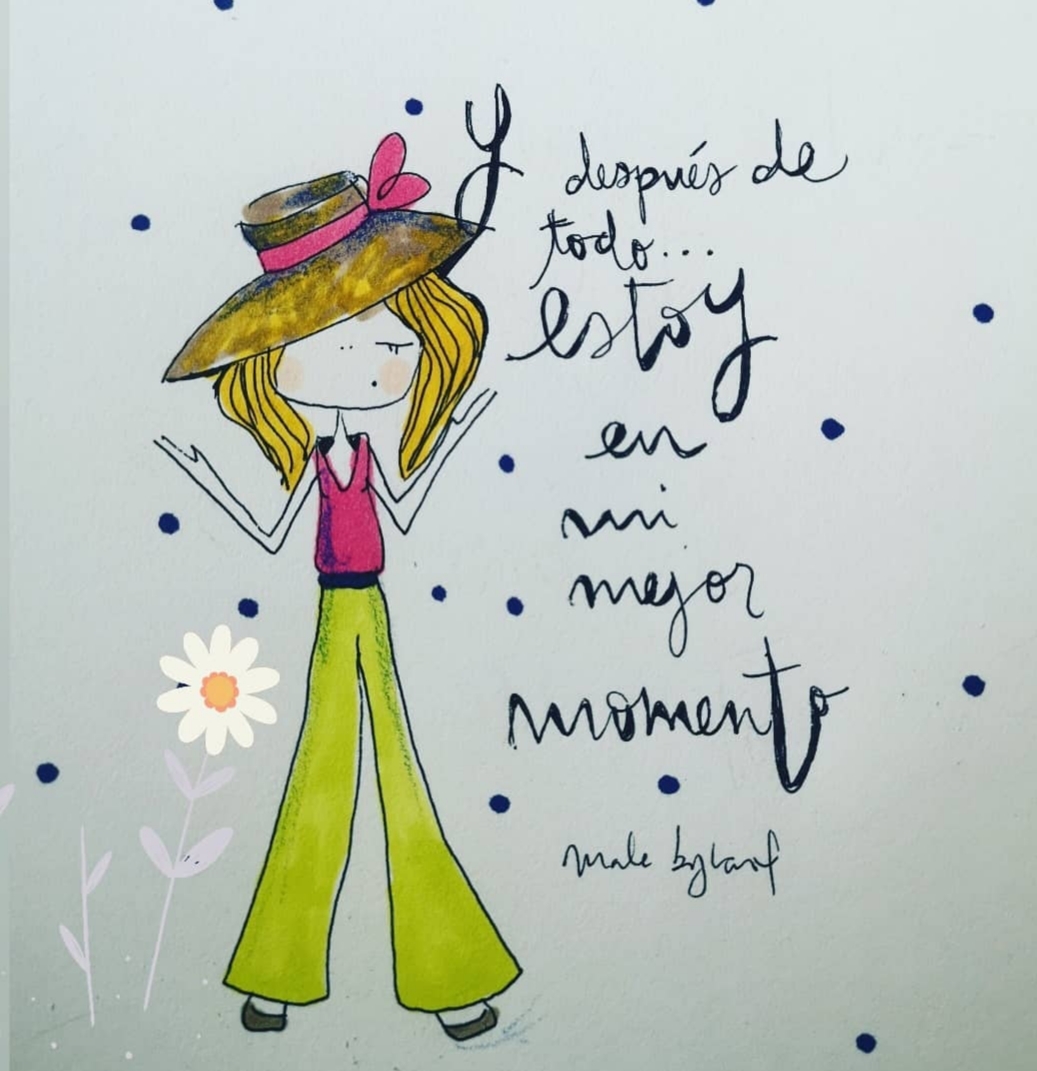 Y
después de
todo...
estoy
en
mi
mejor
momento
male